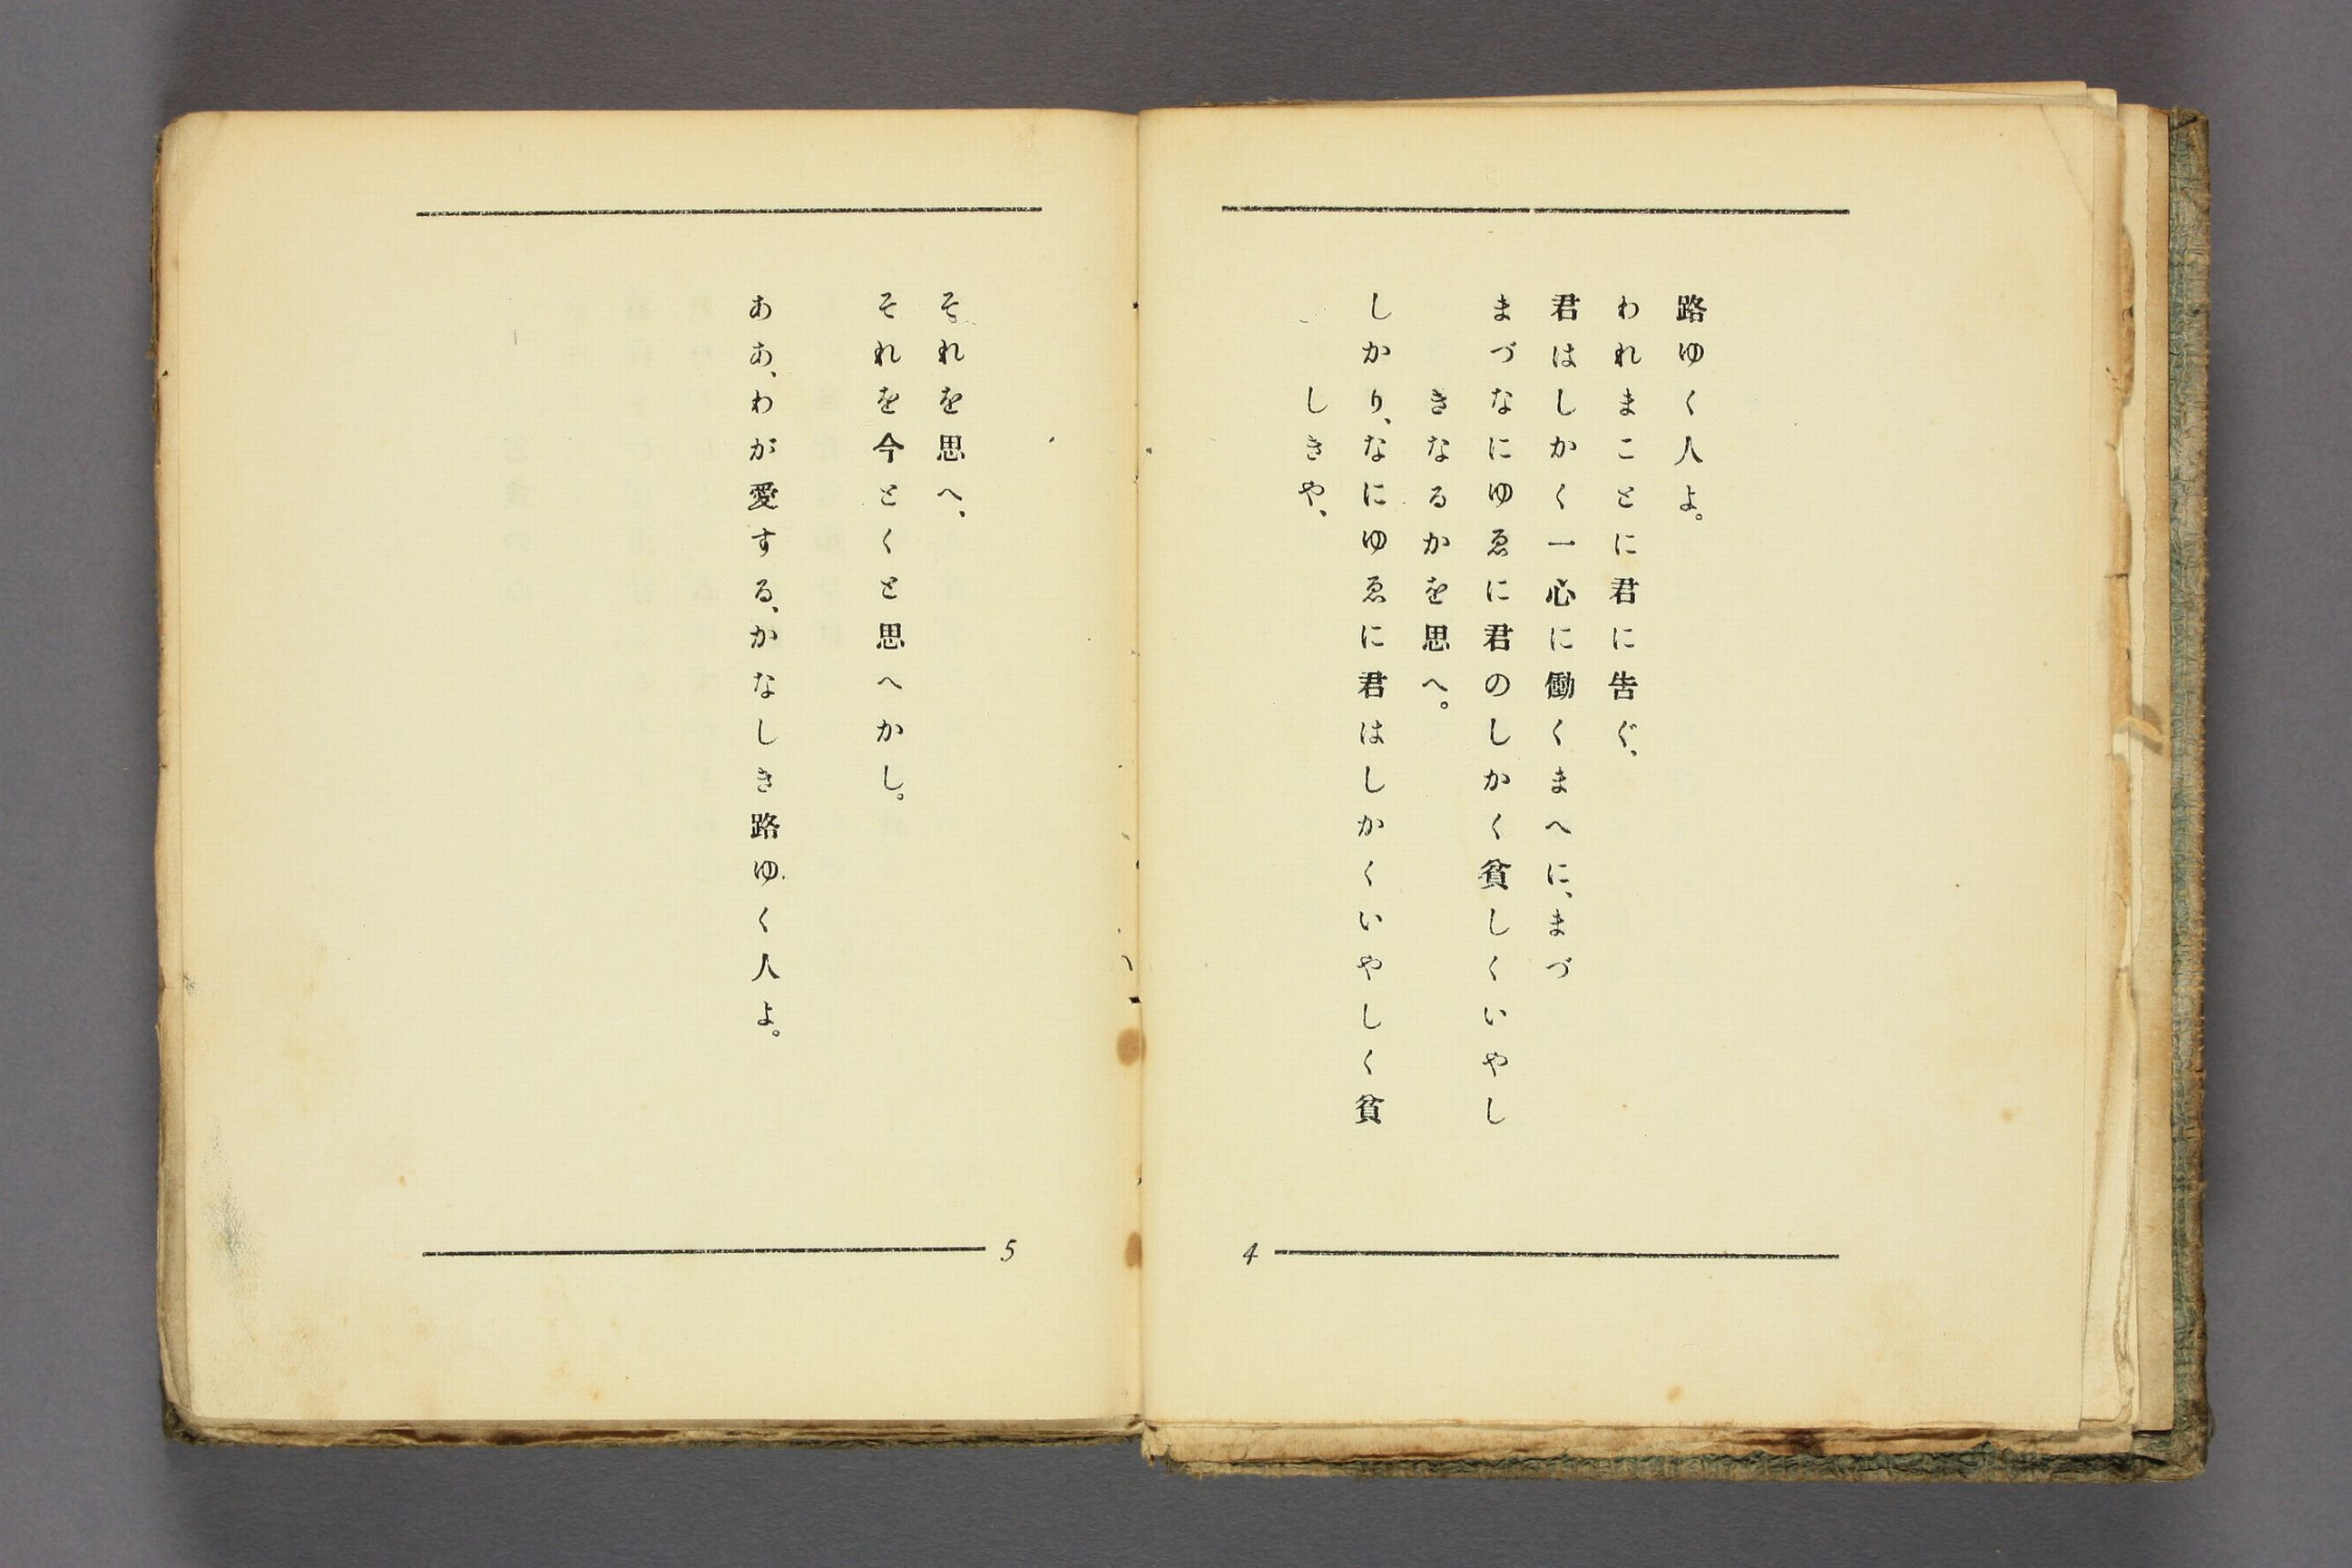 路ゆく人よ。
われまことに君に告ぐ、
君はしかく一心に働くまへに、まづ
まづなにゆゑに君のしかく貧しくいやし
きなるかを思へ。
しかり、なにゆゑに君はしかくいやしく貧
しきや、
4
それを思へ、
それを今とくと思へかし。
ああ、わが愛する、かなしき路ゆく人よ。
5